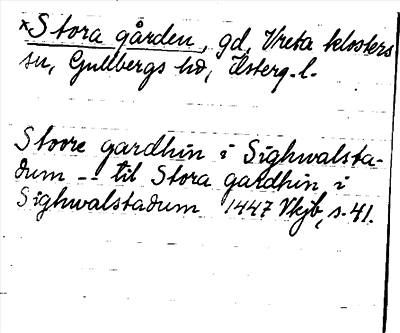 ×Stora gården, gd, Vreta klosters
sn, Gullbergs hd, Österg. l.
Stoore gardhin i Sighwalsta-
dum -- til Stora gardhin i
Sighwalstadum 1447 Vkjb, s. 41.